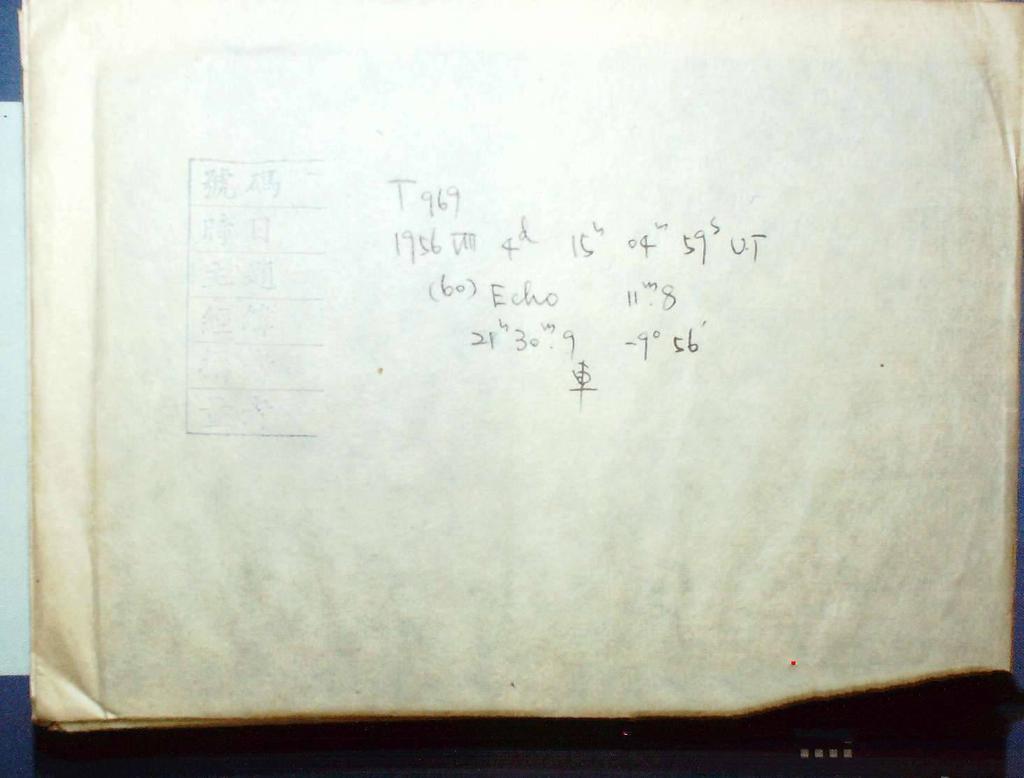 號碼
時日
主題
經緯
T 969
1956 VIII 4ᵈ 15ʰ 04ᵐ 59ˢ U.T
(60) Echo 11ᵐ.8
21ʰ 30ᵐ.9 -9° 56'
車